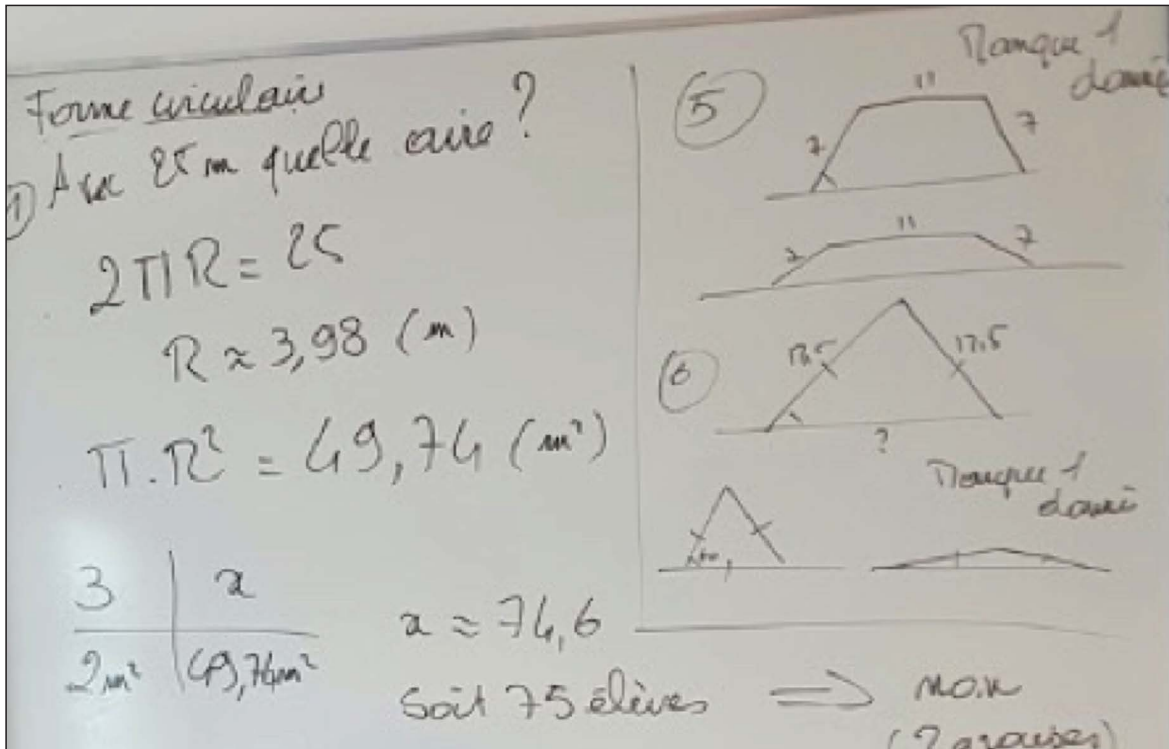 Forme circulaire
① Avec 25 m quelle aire ?
2πR = 25
R ≈ 3,98 (m)
π.R² = 49,74 (m²)
3 | x
2m² | 49,74m²
x ≈ 74,6
Soit 75 élèves ⇒ non
(2 groupes)
⑤ Manque 1
donné
11
7 7
11
7 7
⑥
12,5
?
Manque 1
donné